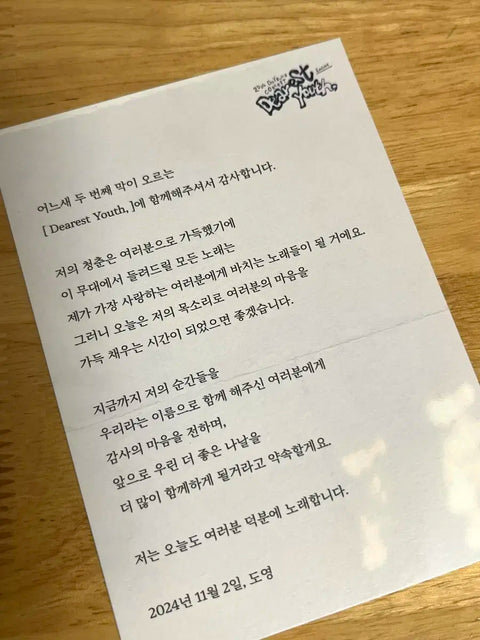 2024 DOYOUNG
CONCERT
Dearest
Youth,
Encore
어느새 두 번째 막이 오르는
[ Dearest Youth, ]에 함께해주셔서 감사합니다.
저의 청춘은 여러분으로 가득했기에
이 무대에서 들려드릴 모든 노래는
제가 가장 사랑하는 여러분에게 바치는 노래들이 될 거에요.
그러니 오늘은 저의 목소리로 여러분의 마음을
가득 채우는 시간이 되었으면 좋겠습니다.
지금까지 저의 순간들을
우리라는 이름으로 함께 해주신 여러분에게
감사의 마음을 전하며,
앞으로 우린 더 좋은 나날을
더 많이 함께하게 될거라고 약속할게요.
저는 오늘도 여러분 덕분에 노래합니다.
2024년 11월 2일, 도영